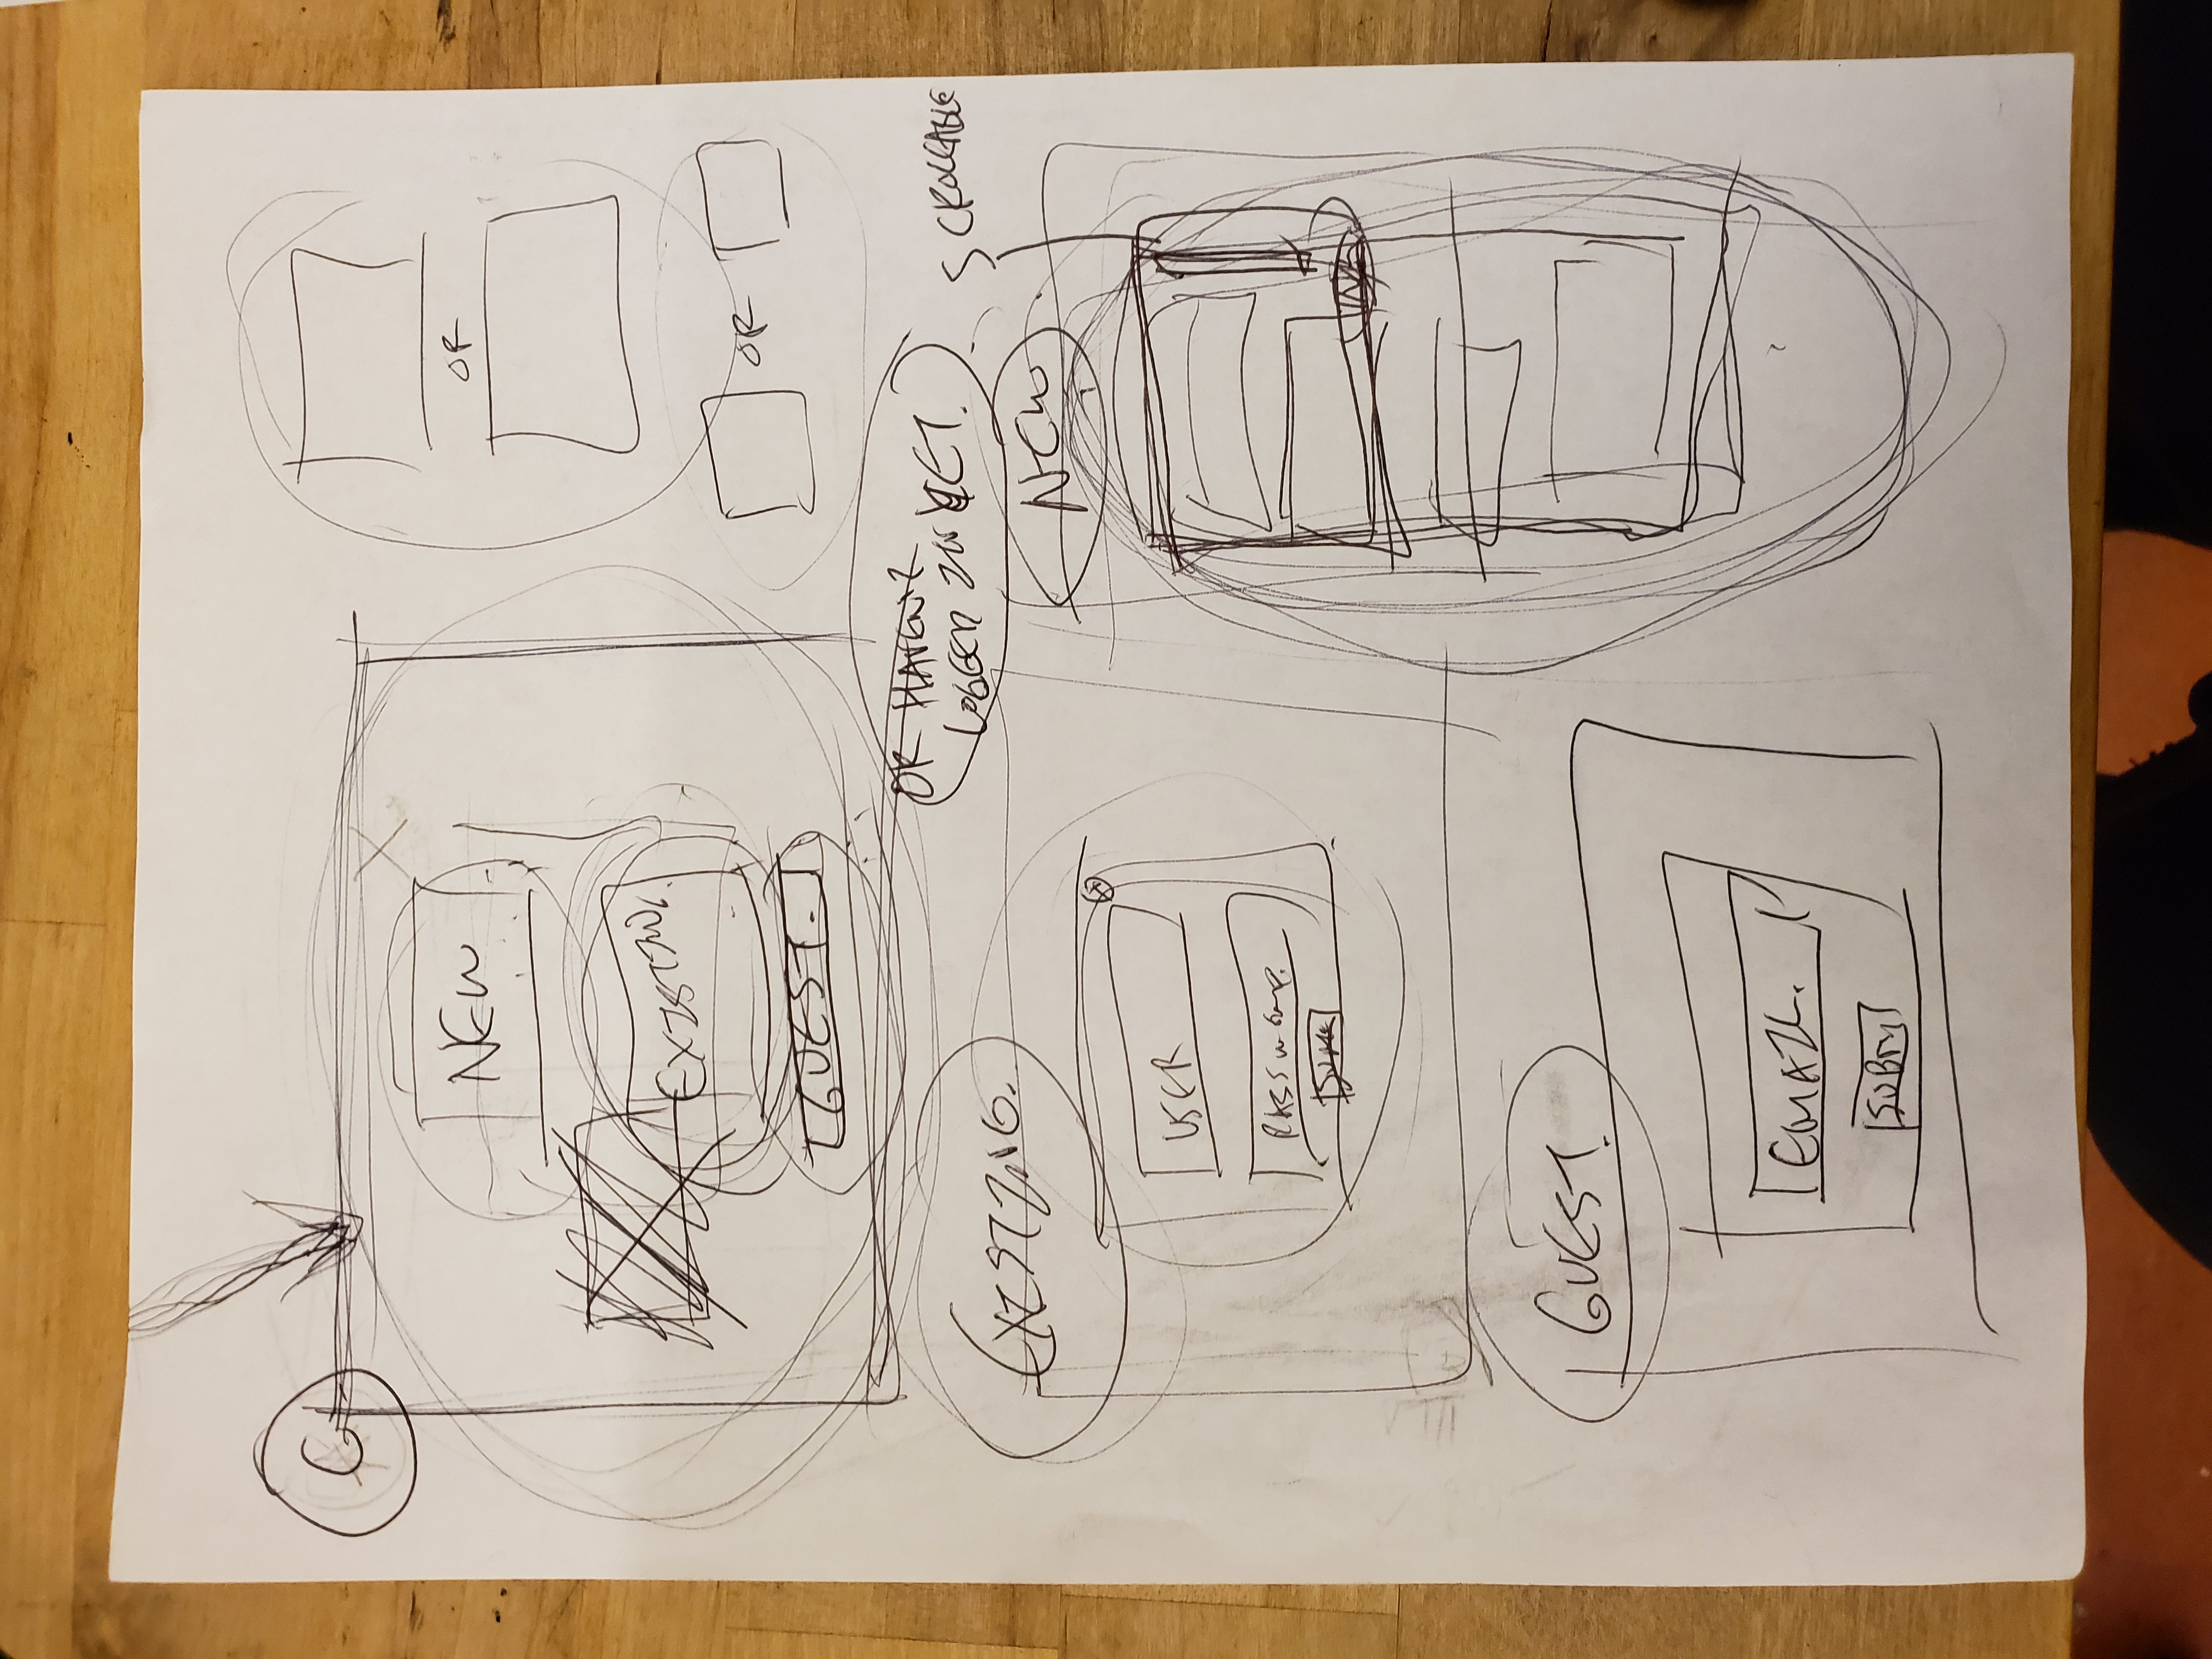 C
NEW
EXISTING.
GUEST.
OR
OR
OR HAVEN'T
LOGGED IN YET.
SCROLLABLE
EXISTING.
NEW
USER
PASSWORD.
GUEST.
EMAIL.
SUBM